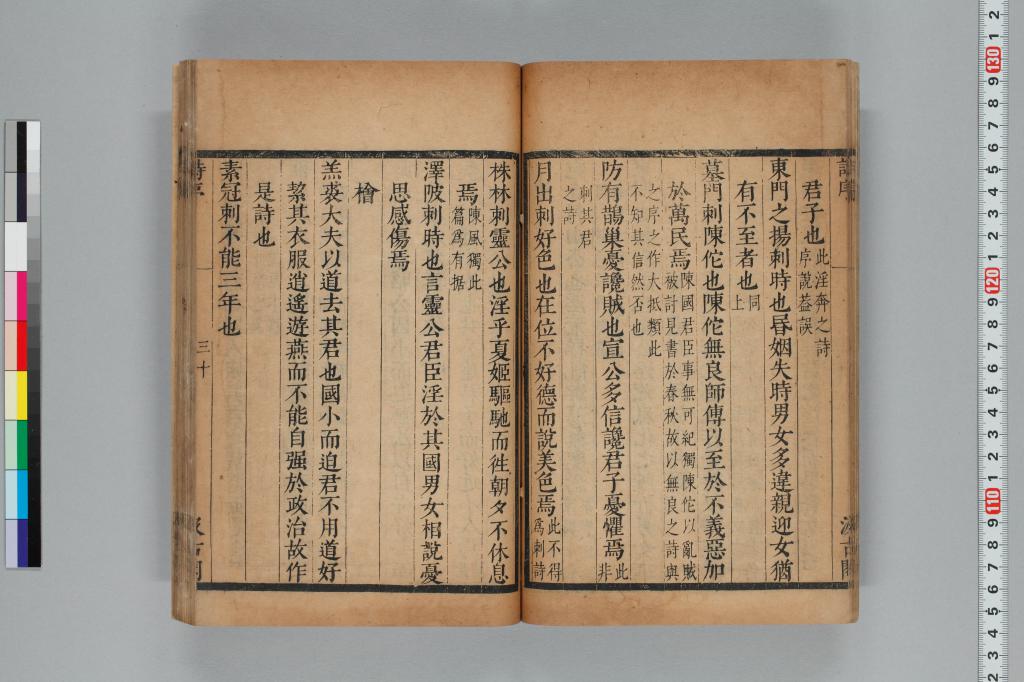 詩序
汲古閣
君子也此淫奔之詩
序說益誤
東門之揚刺時也昬姻失時男女多違親迎女猶
有不至者也同
上
墓門刺陳佗也陳佗無良師傅以至於不義惡加
於萬民焉陳國君臣事無可紀獨陳佗以亂賊
被討見書於春秋故以無良之詩與
之序之作大抵類此
不知其信然否也
防有鵲巢憂讒賊也宣公多信讒君子憂懼焉此
非
刺其君
之詩
月出刺好色也在位不好德而說美色焉此不得
爲刺詩
株林刺靈公也淫乎夏姬驅馳而徃朝夕不休息
焉陳風獨此
篇爲有据
澤陂刺時也言靈公君臣淫於其國男女相說憂
思感傷焉
檜
羔裘大夫以道去其君也國小而迫君不用道好
絜其衣服逍遙遊燕而不能自强於政治故作
是詩也
素冠刺不能三年也
詩序
三十
汲古閣
130
120
110